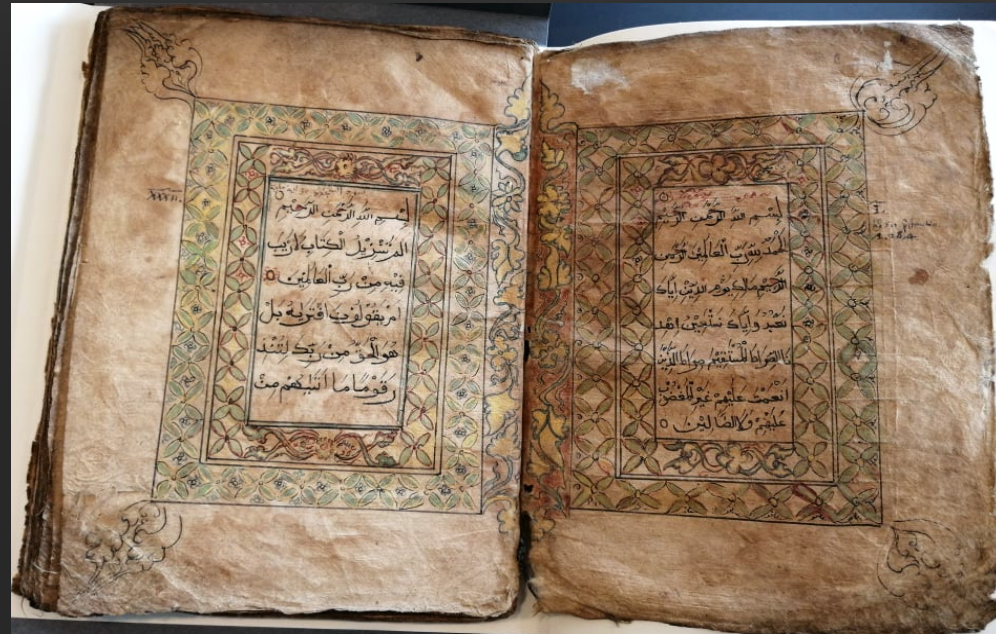 بسم الله الرحمن الرحيم
الحمد لله رب العالمين الرحمن
الرحيم ملك يوم الدين اياك
نعبد واياك نستعين اهد
نا الصراط المستقيم صراط الذين
انعمت عليهم غير المغضوب
عليهم ولا الضالين
I.
بسم الله الرحمن الرحيم
الم تنزيل الكتاب لا ريب
فيه من رب العالمين
ام يقولون افتريه بل
هو الحق من ربك لتنذ
ر قوما ما اتيهم من
XXXII.